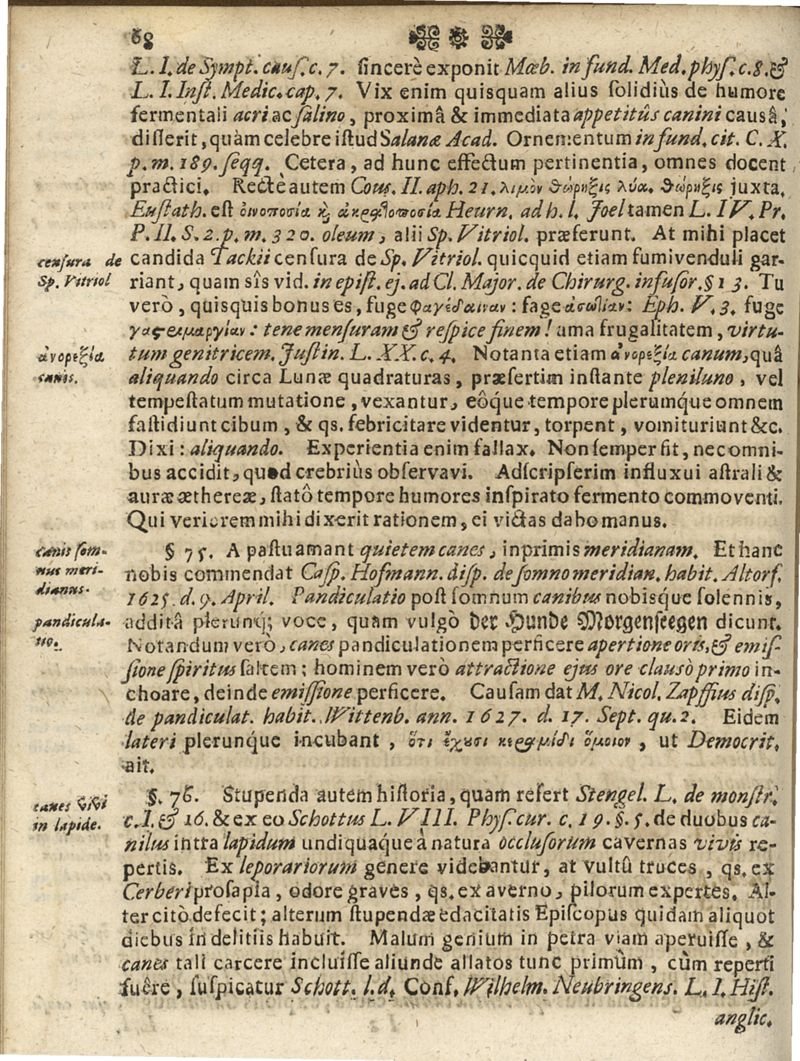 68
L. I. de Sympt. cauſ. c. 7. ſincerè exponit Mœb. in fund. Med. phyſ. c. 8. &
L. I. Inſt. Medic. cap. 7. Vix enim quisquam alius ſolidiùs de humore
fermentali acri ac ſalino, proximâ & immediata appetitûs canini causâ,
diſſerit, quàm celebre iſtud Salanæ Acad. Ornementum in fund. cit. C. X.
p. m. 189. ſeqq. Cetera, ad hunc effectum pertinentia, omnes docent
practici. Rectè autem Cous. II. aph. 21. λιμὸν θώρηξις λύα. θώρηξις juxta.
Euſtath. eſt οἰνοποσία ἢ ἀκρατοποσία Heurn. ad h. l. Joel tamen L. IV. Pr.
P. II. S. 2. p. m. 320. oleum, alii Sp. Vitriol. præferunt. At mihi placet
censura de
Sp. Vitriol
candida Tackii cenſura de Sp. Vitriol. quicquid etiam fumivenduli gar-
riant, quam sîs vid. in epiſt. ej. ad Cl. Major. de Chirurg. infuſor. § 13. Tu
verò, quisquis bonus es, fuge φαγέδαιναν: fage ἀσωτίαν: Eph. V. 3. fuge
γαςριμαργίαν: tene menſuram & reſpice finem! ama frugalitatem, virtu-
ἀνορεξία
canis.
tum genitricem. Juſtin. L. XX. c. 4. Notanta etiam ἀνορεξία canum, quâ
aliquando circa Lunæ quadraturas, præſertim inſtante pleniluno, vel
tempeſtatum mutatione, vexantur, eôque tempore plerumque omnem
faſtidiunt cibum, & qs. febricitare videntur, torpent, vomituriunt &c.
Dixi: aliquando. Experientia enim fallax. Non ſemper fit, nec omni-
bus accidit, quod crebriùs obſervavi. Adſcripſerim influxui aſtrali &
auræ æthereæ, ſtatô tempore humores inſpirato fermento commoventi.
Qui veriorem mihi dixerit rationem, ei victas dabo manus.
canis ſom-
nus meri-
dianus.
§ 75. A paſtu amant quietem canes, inprimis meridianam. Et hanc
nobis commendat Caſp. Hofmann. diſp. de ſomno meridian. habit. Altorf.
1625. d. 9. April. Pandiculatio poſt ſomnum canibus nobisque ſolennis,
pandicula-
tio.
additâ plerunq; voce, quam vulgò der Hunde Morgenſeegen dicunt.
Notandum verò, canes pandiculationem perficere apertione oris, & emiſ-
ſione ſpiritus ſaltem; hominem verò attractione ejus ore clausò primo in-
choare, deinde emiſſione perficere. Cauſam dat M. Nicol. Zapffius diſp.
de pandiculat. habit. Wittenb. ann. 1627. d. 17. Sept. qu. 2. Eidem
lateri plerunque incubant, ὅτι ἔχυσι κεραμίδι ὅμοιον, ut Democrit.
ait.
canes vivi
in lapide.
§. 76. Stupenda autem hiſtoria, quam refert Stengel. L. de monſtr.
c. I. & 16. & ex eo Schottus L. VIII. Phyſ. cur. c. 19. §. 5. de duobus ca-
nilus intra lapidum undiquaque à natura occluſorum cavernas vivis re-
pertis. Ex leporariorum genere videbantur, at vultû truces, qs. ex
Cerberi proſapia, odore graves, qs. ex averno, pilorum expertes. Al-
ter citò defecit; alterum ſtupendæ edacitatis Epiſcopus quidam aliquot
diebus in delitiis habuit. Malum genium in petra viam aperuiſſe, &
canes tali carcere incluiſſe aliunde allatos tunc primùm, cùm reperti
fuêre, ſuſpicatur Schott. l. d. Conf. Wilhelm. Neubringens. L. I. Hiſt.
anglic.